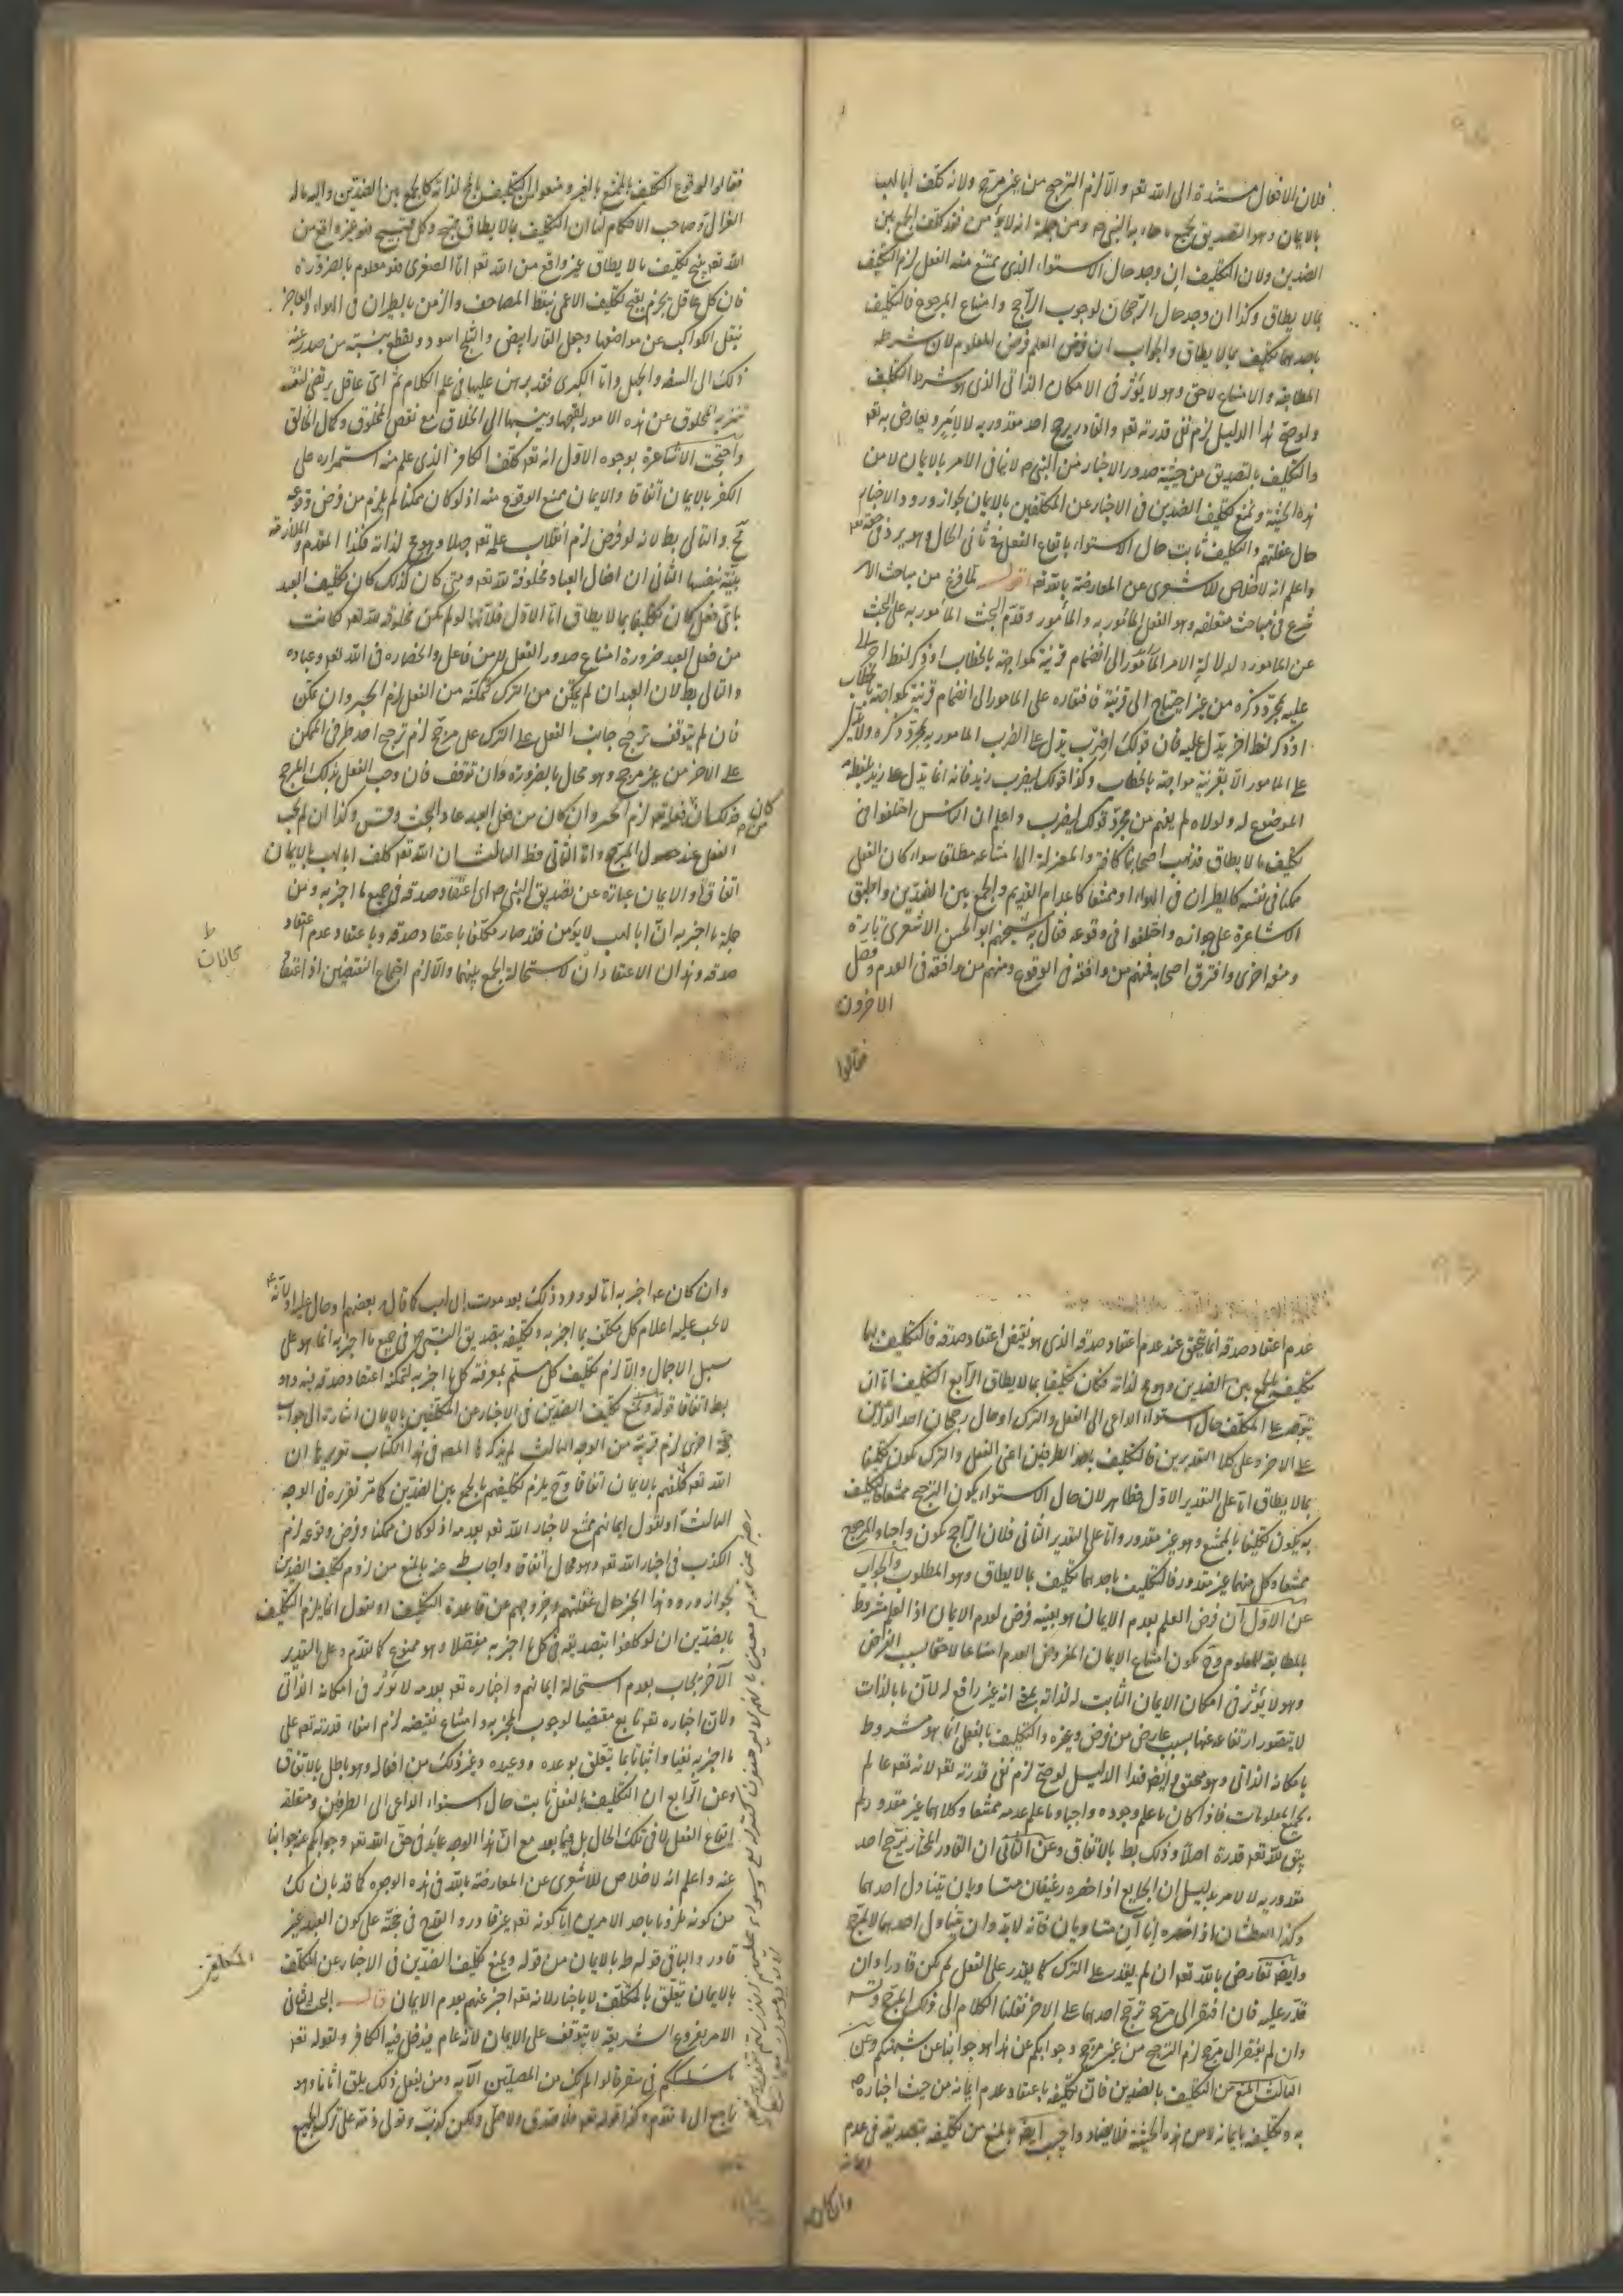 فلان الافعال مستندة الى الله تعه والا لزم الترجيح من غير مرجح ولانه كلف ابا لهب
بالايمان وهو التصديق بجميع ما جاء به النبى م ومن جملته انه لا يؤمن فقد كلف الجمع بين
الضدين ولان التكليف ان وجد حال الاستواء الذى يمتنع منه الفعل لزم التكليف
بما لا يطاق وكذا ان وجد حال الرجحان لوجوب الراجح وامتناع المرجوح فالتكليف
باحدهما تكليف بما لا يطاق والجواب ان فرض العلم فرض المعلوم لان شرطه
المطابقة والامتناع لاحق وهو لا يؤثر فى الامكان الذاتى الذى هو شرط التكليف
ولو صح هذا الدليل لزم نفى قدرته تعه والقادر يرجح احد مقدوريه لا لامر ويعارض به تعه
والتكليف بالتصديق من حيثية صدور الاخبار من النبى م لا ينافى الامر بالايمان لا من
هذه الحيثية ونمنع تكليف الضدين فى الاخبار عن المكلفين بالايمان لجواز ورود الاخبار
حال غفلتهم والتكليف ثابت حال الاستواء بايقاع الفعل فى ثانى الحال وهو يرد فى حقه تعه
واعلم انه لا خلاص للاشعرى عن المعارضة بالله تعه اقول لما فرغ من مباحث الامر
شرع فى مباحث متعلقه وهو الفعل المأمور به والمأمور وقدم البحث المأمور به على البحث
عن المامور لدلالة الامر المأمور الى انضمام قرينة كمواجهة بالخطاب او ذكر لفظ اخر
عليه بمجرد ذكره من غير احتياج الى قرينة فافتقاره على المامور الى انضمام قرينة كمواجهة بالخطاب
او ذكر لفظ اخر يدل عليه فان قولك اضرب يدل على الضرب المامور به بمجرد ذكره ولا يدل
على المامور الا بقرينة مواجهة بالخطاب وكذا قولك ليضرب زيد فانه انما يدل على زيد بلفظه
الموضوع له ولولاه لم يفهم من مجرد قولك ليضرب واعلم ان الناس اختلفوا فى
تكليف ما لا يطاق فذهب اصحابنا كافة والمعتزلة الى امتناعه مطلقا سواء كان الفعل
ممكنا فى نفسه كالطيران فى الهواء او ممتنعا كاعدام القديم والجمع بين الضدين واطبق
الاشاعرة على جوازه واختلفوا فى وقوعه فقال به شيخهم ابو الحسن الاشعرى تارة
ومنعه اخرى وافترق اصحابه فمنهم من وافقه فى الوقوع ومنهم من وافقه فى العدم وفصل
الاخرون
فقالوا
فقالوا بوقوع التكليف بالممتنع بالغير ومنعوا التكليف بالمح لذاته كالجمع بين الضدين واليه مال
الغزالى وصاحب الاحكام لنا ان التكليف بما لا يطاق قبيح وكل قبيح فهو غير واقع من
الله تعه ينتج تكليف ما لا يطاق غير واقع من الله تعه اما الصغرى فهو معلوم بالضرورة
فان كل عاقل يجزم بقبح تكليف الاعمى بنقط المصاحف والزمن بالطيران فى الهواء والعاجز
بنقل الكواكب عن مواضعها وجعل القار ابيض والثلج اسود ويقطع بنسبة من صدر عنه
ذلك الى السفه والجهل واما الكبرى فقد برهن عليها فى علم الكلام ثم اى عاقل يرتضى لنفسه
تنزيه المخلوق عن هذه الامور لقبحها وينسبها الى الخلاق مع نقص المخلوق وكمال الخالق
واحتجت الاشاعرة بوجوه الاول انه تعه كلف الكافر الذى علم منه استمراره على
الكفر بالايمان اتفاقا والايمان ممتنع الوقوع منه اذ لو كان ممكنا لم يلزم من فرض وقوعه
مح والتالى بط لانه لو فرض لزم انقلاب علمه تعه جهلا وهو مح لذاته فكذا المقدم والملازمة
بينة بنفسها الثانى ان افعال العباد مخلوقة لله تعه ومتى كان كذلك كان تكليف العبد
باى فعل كان تكليفا بما لا يطاق اما الاول فلانها لو لم تكن مخلوقة لله تعه لكانت
من فعل العبد ضرورة امتناع صدور الفعل لا من فاعل وانحصاره فى الله تعه وعباده
والتالى بط لان العبد ان لم يتمكن من الترك لتمكنه من الفعل لزم الجبر وان تمكن
فان لم يتوقف ترجيح جانب الفعل على الترك على مرجح لزم ترجيح احد طرفى الممكن
على الاخر من غير مرجح وهو محال بالضرورة وان توقف فان وجب الفعل بذلك المرجح
كان من فعله تعه لزم الجبر وان كان من فعل العبد عاد البحث وتس وكذا ان لم يجب
الفعل عند حصول المرجح واما الثانى فظ الثالث ان الله تعه كلف ابا لهب بالايمان
اتفاقا والايمان عبارة عن تصديق النبى م اى اعتقاد صدقه فى جميع ما اخبر به ومن
جملة ما اخبر به ان ابا لهب لا يؤمن فقد صار مكلفا باعتقاد صدقه وباعتقاد عدم اعتقاد
صدقه وهذان الاعتقادان لاستحالة الجمع بينهما والا لزم اجتماع النقيضين اذ اعتقاد
عدم اعتقاد صدقه انما يتحقق عند عدم اعتقاد صدقه الذى هو نقيض اعتقاد صدقه فالتكليف بهما
تكليف بالجمع بين الضدين وهو مح لذاته فكان تكليفا بما لا يطاق الرابع التكليف اما ان
يتوجه على المكلف حال استواء الداعى الى الفعل والترك او حال رجحان احد الداعيين
على الاخر وعلى كلا التقديرين فالتكليف باحد الطرفين اعنى الفعل والترك يكون تكليفا
بما لا يطاق اما على التقدير الاول فظاهر لان حال الاستواء يكون الترجيح ممتنعا فالتكليف
به يكون تكليفا بالممتنع وهو غير مقدور واما على التقدير الثانى فلان الراجح يكون واجبا والمرجوح
ممتنعا وكل منهما غير مقدور فالتكليف باحدهما تكليف بما لا يطاق وهو المطلوب والجواب
عن الاول ان فرض العلم بعدم الايمان هو بعينه فرض لعدم الايمان اذ العلم مشروط
بالمطابقة للمعلوم وح يكون امتناع الايمان المفروض العدم امتناعا لاحقا بسبب الفرض
وهو لا يؤثر فى امكان الايمان الثابت له لذاته بمعنى انه غير رافع له لان ما بالذات
لا يتصور ارتفاعه عنها بسبب عارض من فرض وغيره والتكليف بالفعل انما هو مشروط
بامكانه الذاتى وهو متحقق وايضا فهذا الدليل لو صح لزم نفى قدرته تعه لانه تعه عالم
بجميع المعلومات فاذا كان ما علم وجوده واجبا وما علم عدمه ممتنعا وكلاهما غير مقدور لم
يبق لله تعه قدرة اصلا وذلك بط بالاتفاق وعن الثانى ان القادر المختار يرجح احد
مقدوريه لا لامر بدليل ان الجايع اذا حضره رغيفان متساويان يتناول احدهما
وكذا العطشان اذا حضره اناآن متساويان فانه لابد وان يتناول احدهما لا لمرجح
وايضا تعارض بالله تعه ان لم يقدر على الترك كما يقدر على الفعل لم يكن قادرا وان
قدر عليه فان افتقر الى مرجح ترجح احدهما على الاخر نقلنا الكلام الى ذلك المرجح وتس
وان لم يفتقر الى مرجح لزم الترجيح من غير مرجح وجوابكم عن هذا هو جوابنا عن شبهتكم وعن
الثالث المنع من التكليف بالضدين فان تكليفه باعتقاد عدم ايمانه من حيث اخباره م
به وتكليفه بايمانه لا من هذه الحيثية فلا يضاد واجيب ايضا بالمنع من تكليفه بتصديقه فى عدم
ايمانه
وان كان
وان كان مما اخبر به اما لورود ذلك بعد موت ابى لهب كما قال بعضهم او حال غفلته او لانه
لا يجب عليه اعلام كل مكلف بما اخبر به وتكليفه بتصديق النبى م فى جميع ما اخبر به انما هو على
سبيل الاجمال والا لزم تكليف كل مسلم بمعرفة كل ما اخبر به ليمكنه اعتقاد صدقه فيه وهو
بط اتفاقا قوله ونمنع تكليف الضدين فى الاخبار عن المكلفين بالايمان اشارة الى جواب
حجة اخرى لهم قريبة من الوجه الثالث لم يذكرها المصه فى هذا الكتاب تقريرها ان
الله تعه كلفهم بالايمان اتفاقا وح يلزم تكليفهم بالجمع بين الضدين كما مر تقريره فى الوجه
الثالث او نقول ايمانهم ممتنع لاخبار الله تعه بعدمه اذ لو كان ممكنا وفرض وقوعه لزم
الكذب فى اخبار الله تعه وهو محال اتفاقا واجاب ط عنه بالمنع من لزوم تكليف الضدين
لجواز ورود هذا الخبر حال غفلتهم وخروجهم عن قاعدة التكليف او نقول انما يلزم التكليف
بالضدين ان لو كلفوا بتصديقه فى كل ما اخبر به مفصلا وهو ممنوع كما تقدم وعلى التقدير
الآخر يجاب بعدم استحالة ايمانهم واخباره تعه بعدمه لا يؤثر فى امكانه الذاتى
ولان اخباره تعه تابع مقتضيا لوجوب المخبر به وامتناع نقيضه لزم انتفاء قدرته تعه على
ما اخبر به نفيا واثباتا مما يتعلق بوعده ووعيده وغير ذلك من افعاله وهو باطل بالاتفاق
وعن الرابع ان التكليف بالفعل ثابت حال استواء الداعى الى الطرفين ومتعلقه
ايقاع الفعل لا فى تلك الحال بل فيما بعد مع ان هذا الوجه عايد فى حق الله تعه وجوابكم عنه جوابنا
عنه واعلم انه لا خلاص للاشعرى عن المعارضة بالله فى هذه الوجوه كما قد بان لك
من كونه ملزوما باحد الامرين اما كونه تعه غير قادر او القدح فى حجته على كون العبد غير
قادر والباقى قوله ط بالايمان من قوله ونمنع تكليف الضدين فى الاخبار عن المكلفين
بالايمان يتعلق بالمكلف لا باخبار لانه تعه اخبر عنهم بعدم الايمان قال البحث الثانى
الامر بفروع الشريعة لا يتوقف على الايمان لانه عام فيدخل فيه الكافر ولقوله تعه
ما سلككم فى سقر قالوا لم نك من المصلين الآية ومن يفعل ذلك يلق اثاما وهو
راجع الى ما تقدم وكذا قوله تعه فلا صدق ولا صلى ولكن كذب وتولى ذمه على ترك الجميع
المكلفين